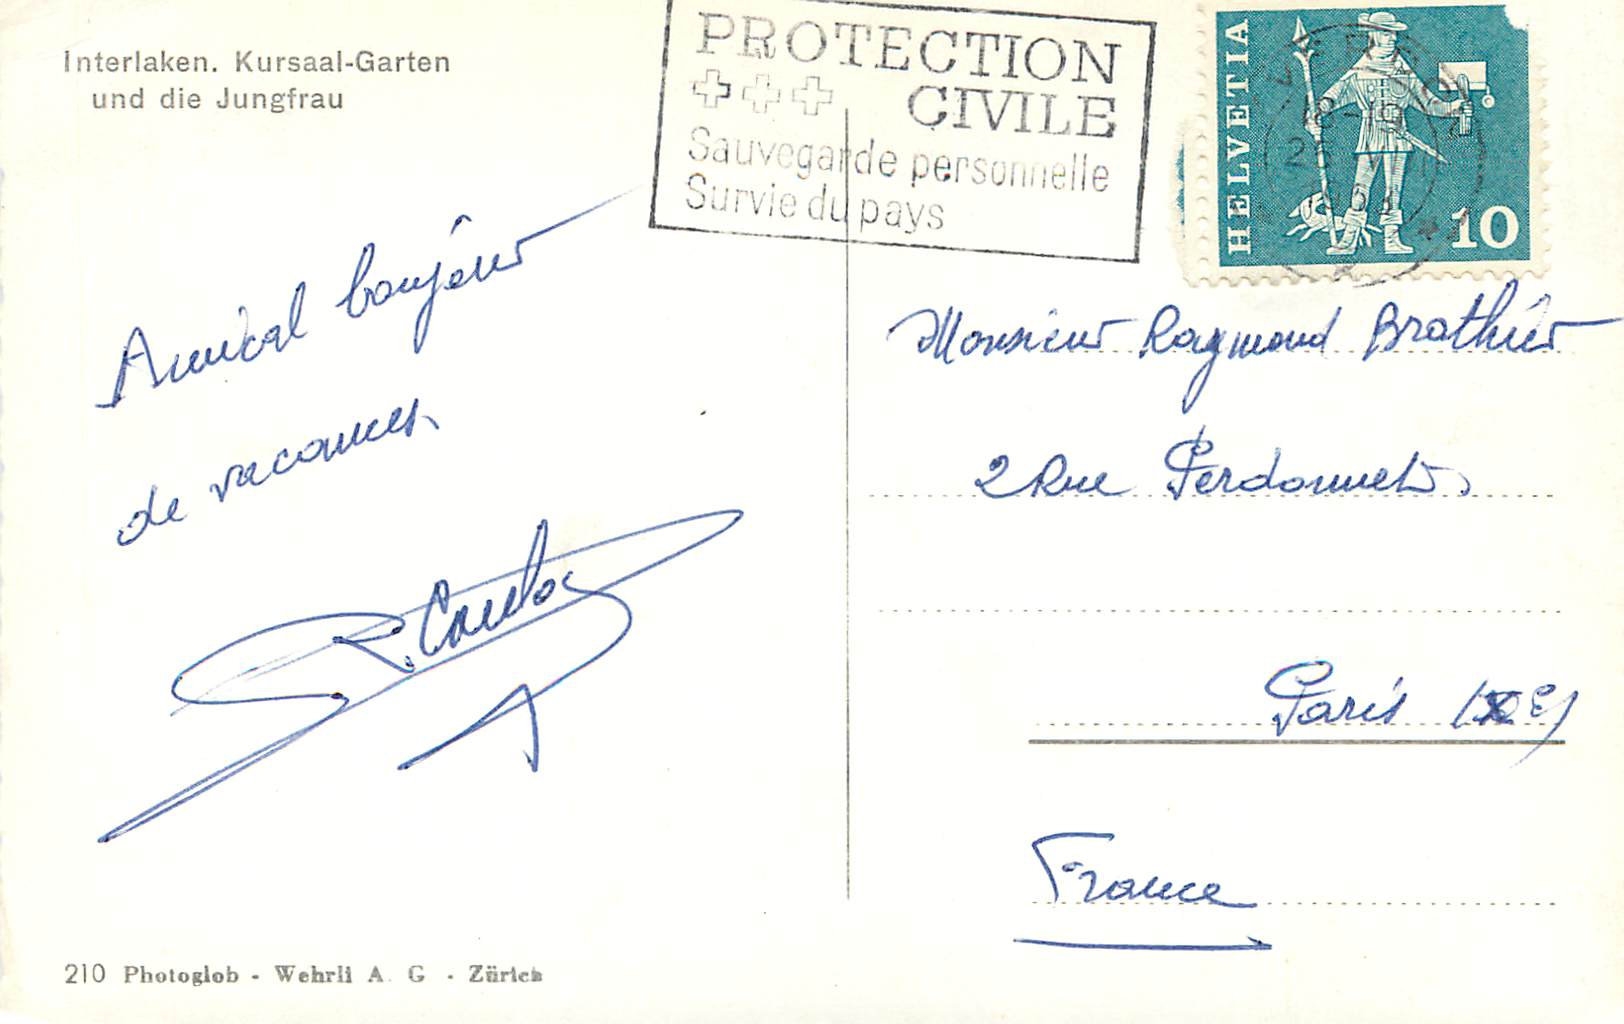 Interlaken. Kursaal-Garten
und die Jungfrau
PROTECTION
CIVILE
Sauvegarde personnelle
Survie du pays
HELVETIA
10
Amical bonjour
de vacances
Monsieur Raymond Brathier
2 Rue Perdonnet
Paris
France
210 Photoglob - Wehrli A. G. - Zürich